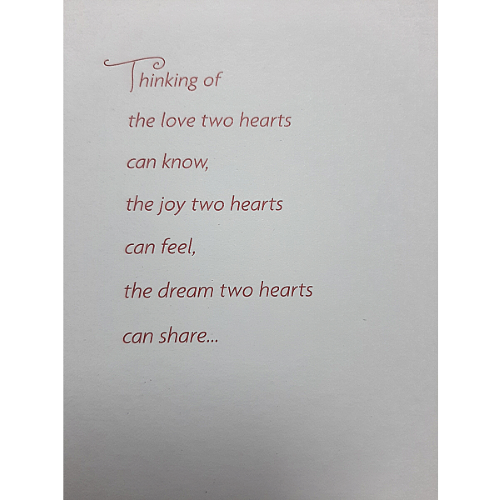 Thinking of
the love two hearts
can know,
the joy two hearts
can feel,
the dream two hearts
can share...